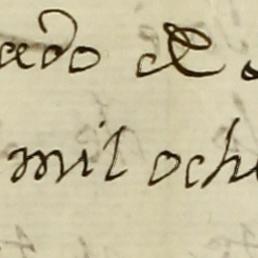 ado de
mil oche